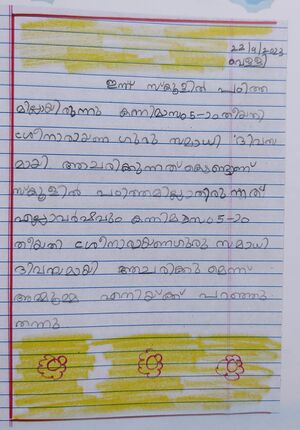 22/9/2023
വെള്ളി
ഇന്ന് സ്കൂളിൽ പഠിത്ത
മില്ലായിരുന്നു കന്നിമാസം 5-ാം തീയതി
ശ്രീനാരായണ ഗുരു സമാധി ദിവസ
മായി അചരിക്കുന്നത് കൊണ്ടാണ്
സ്കൂളിൽ പഠിത്തമില്ലാതിരുന്നത്
എല്ലാവർഷവും കന്നിമാസം 5-ാം
തീയതി ശ്രീനാരായണഗുരു സമാധി
ദിവസമായി അചരിക്കുമെന്ന്
അമ്മുമ്മ എനിയ്ക്ക് പറഞ്ഞു
തന്നു